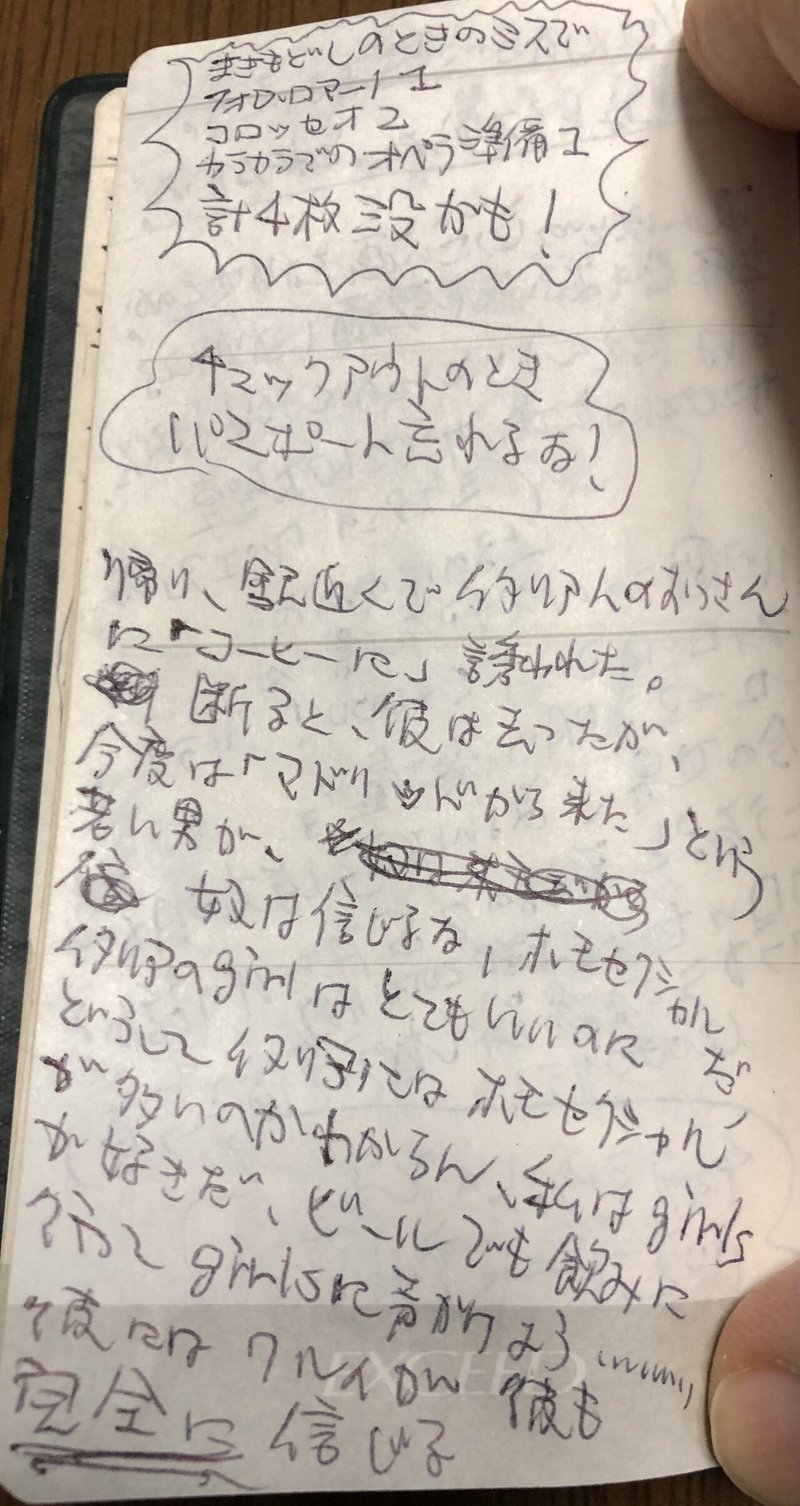 まきもどしのときのミスで
フォロ・ロマーノ1
コロッセオ2
カラカラでのオペラ準備1
計4枚没かも!
チェックアウトのとき
パスポート忘れるな!
帰り、駅近くでイタリア人のおっさん
に「コーヒーに」誘われた。
断ると、彼は去ったが、
今度は「マドリッドから来た」という
若い男が、
奴は信じるな、ホモセクシャル
だ、
イタリアのgirlはとてもいいのに
どうしてイタリアにはホモセクシャル
が多いのかわからん、私はgirls
が好きだ、ビールでも飲みに
行ってgirlsに声かけよう……
彼にはワルイが 彼も
完全に信じる
EXCEED